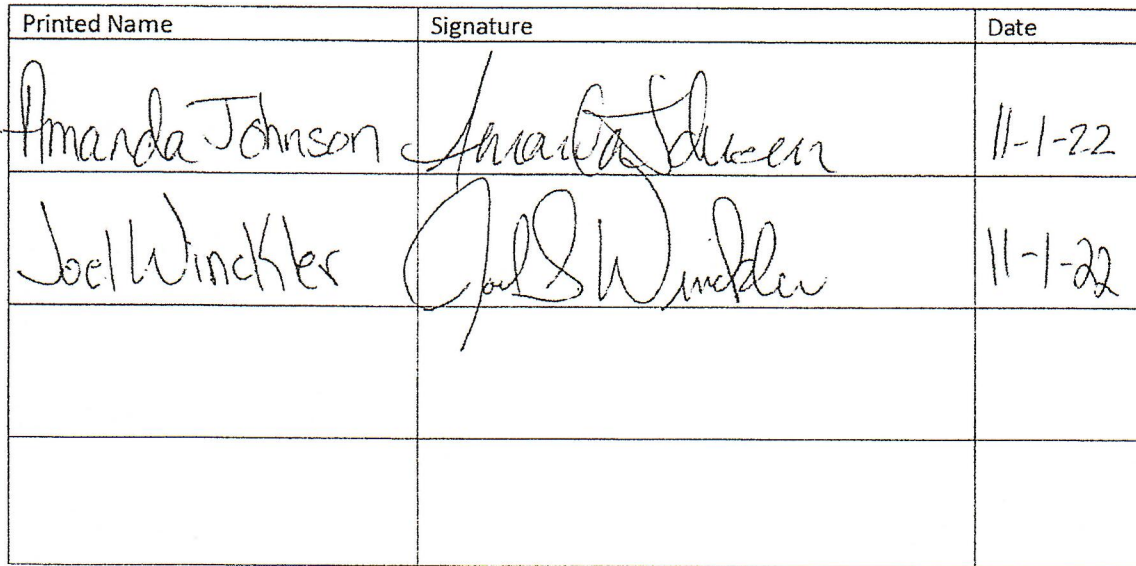 Printed Name Signature Date
Amanda Johnson Amanda Johnson 11-1-22
Joel Winckler Joel S Winckler 11-1-22